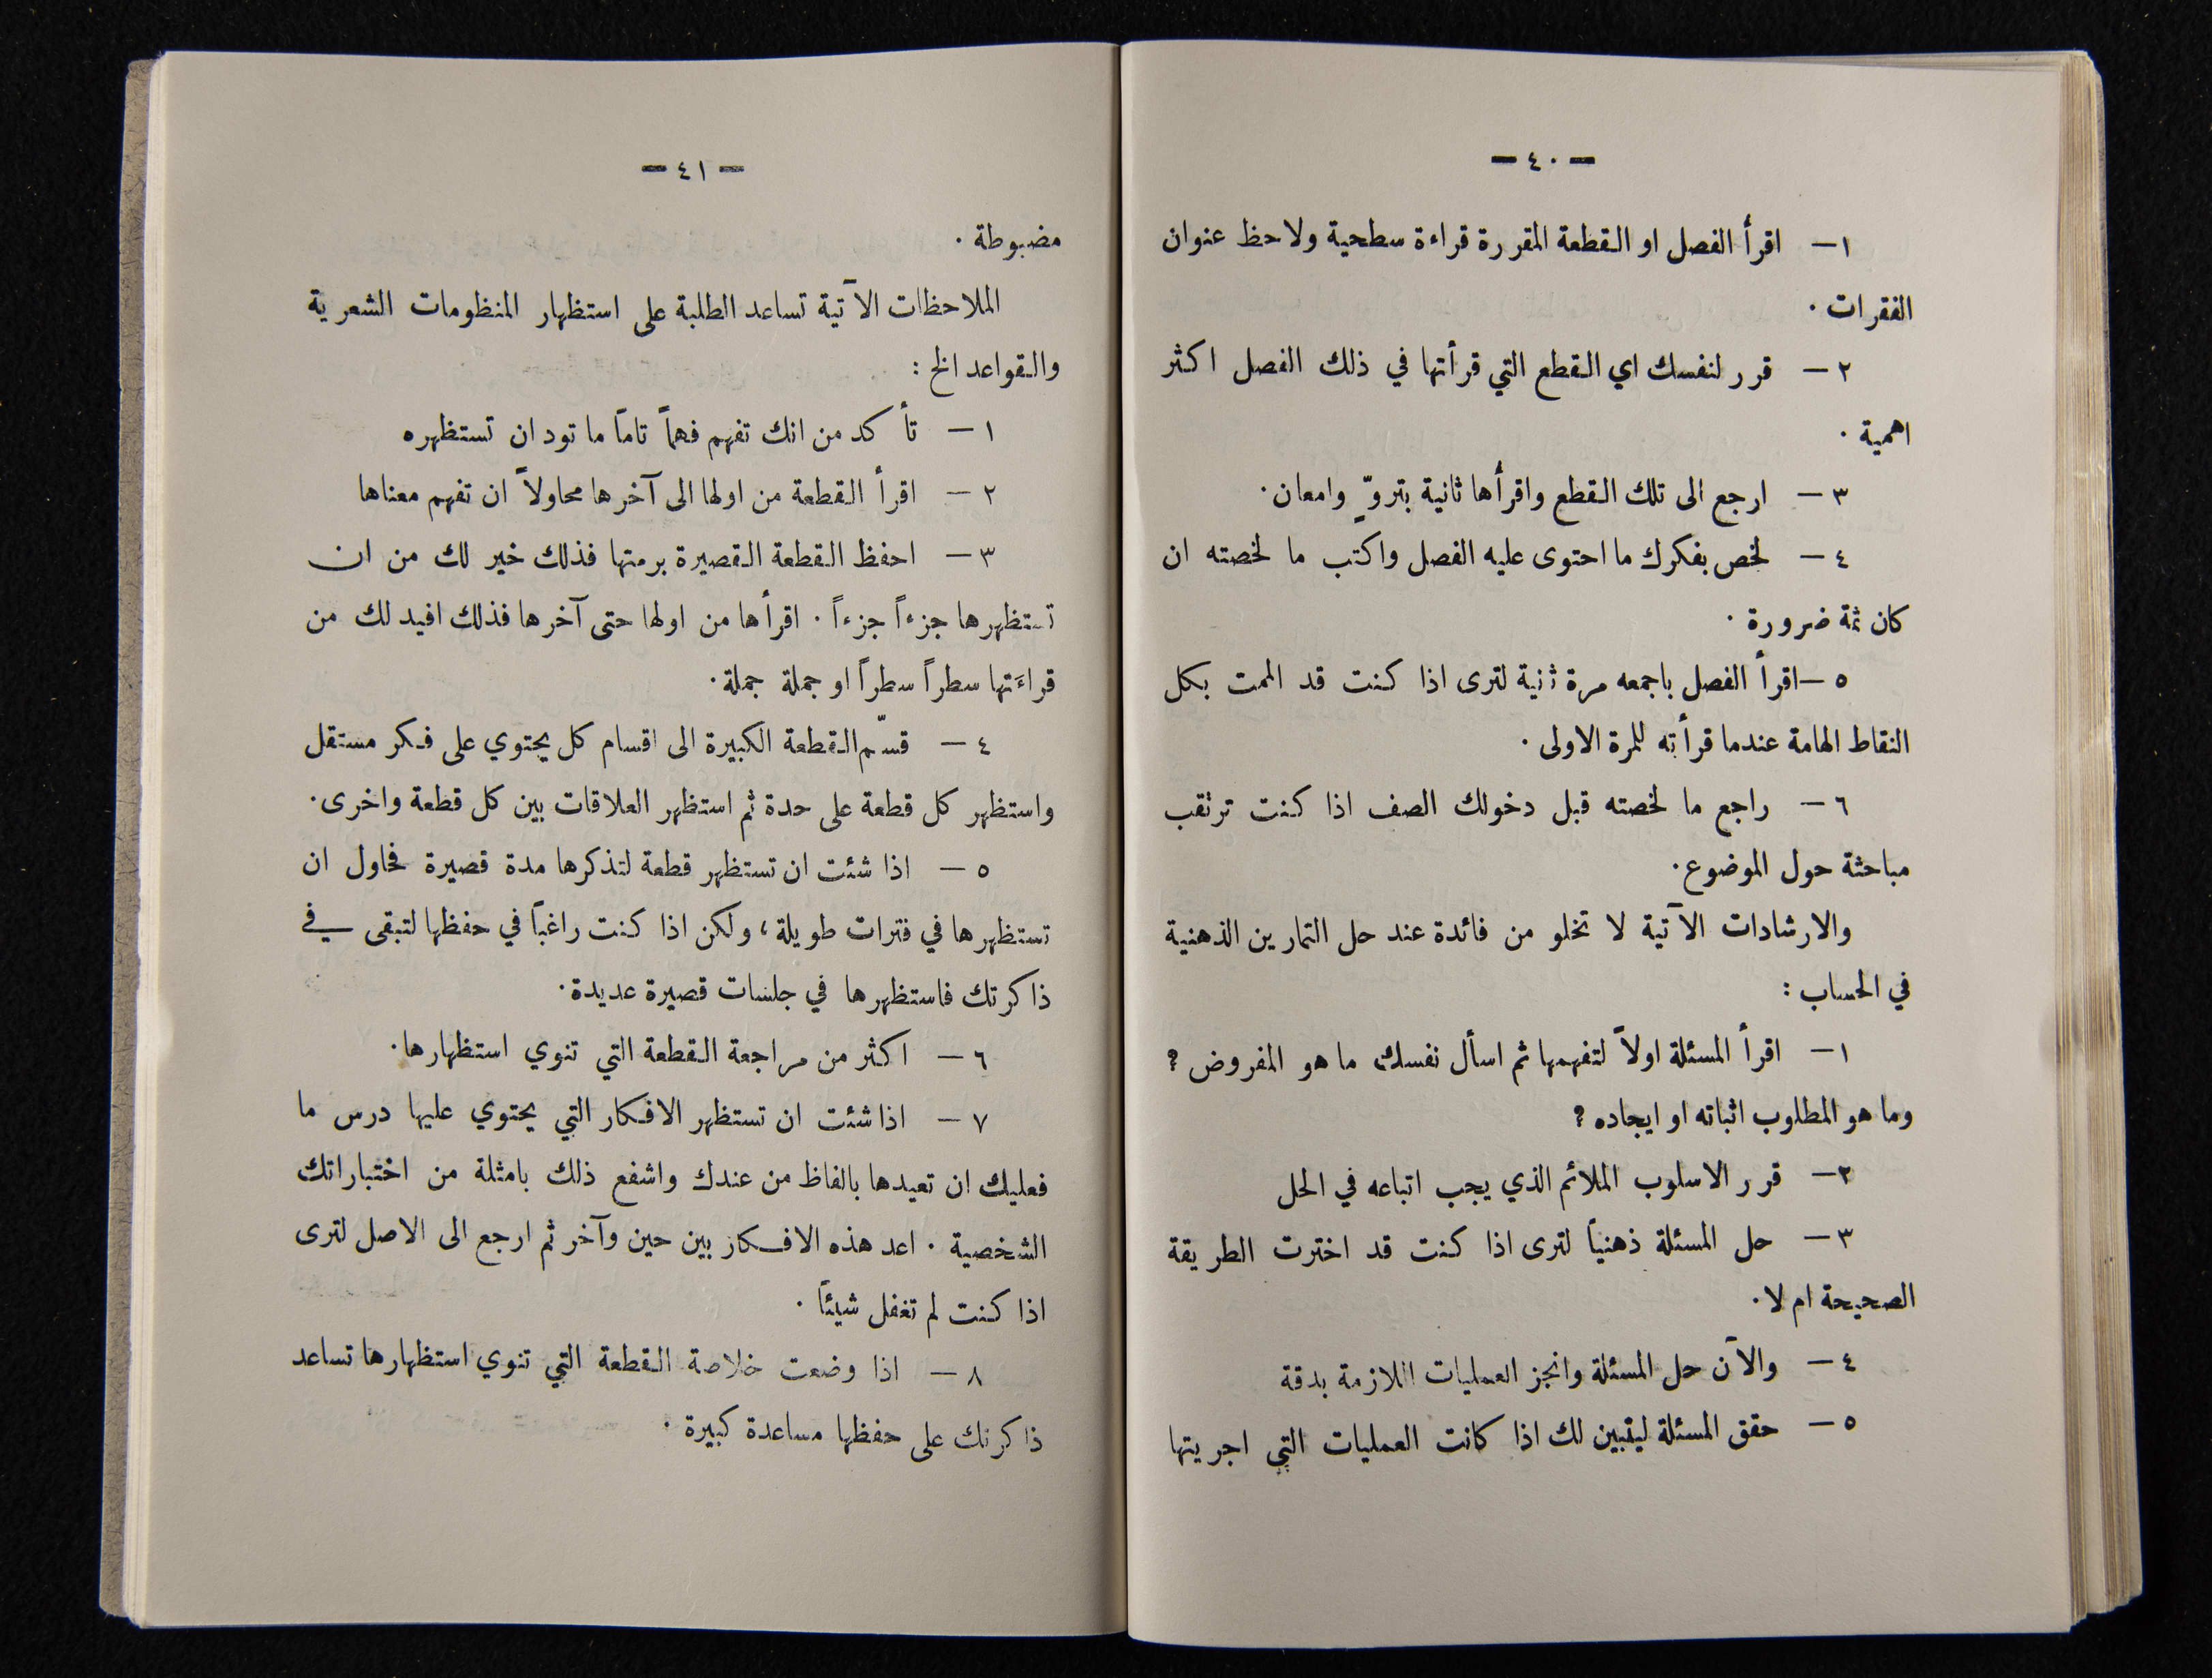 — ٤٠ —
١ — اقرأ الفصل او القطعة المقررة قراءة سطحية ولاحظ عنوان
الفقرات ٠
٢ — قرر لنفسك اي القطع التي قرأتها في ذلك الفصل اكثر
اهمية ٠
٣ — ارجع الى تلك القطع واقرأها ثانية بتروٍّ وامعان ٠
٤ — لخص بفكرك ما احتوى عليه الفصل واكتب ما لخصته ان
كان ثمة ضرورة ٠
٥ — اقرأ الفصل باجمعه مرة ثنية لترى اذا كنت قد الممت بكل
النقاط الهامة عندما قرأته للمرة الاولى ٠
٦ — راجع ما لخصته قبل دخولك الصف اذا كنت ترتقب
مباحثة حول الموضوع ٠
والارشادات الآتية لا تخلو من فائدة عند حل التمارين الذهنية
في الحساب :
١ — اقرأ المسئلة اولاً لتفهمها ثم اسأل نفسك ما هو المفروض ؟
وما هو المطلوب اثباته او ايجاده ؟
٢ — قرر الاسلوب الملائم الذي يجب اتباعه في الحل
٣ — حل المسئلة ذهنياً لترى اذا كنت قد اخترت الطريقة
الصحيحة ام لا ٠
٤ — والآن حل المسئلة وانجز العمليات اللازمة بدقة
٥ — حقق المسئلة ليتبين لك اذا كانت العمليات التي اجريتها
— ٤١ —
مضبوطة ٠
الملاحظات الآتية تساعد الطلبة على استظهار المنظومات الشعرية
والقواعد الخ :
١ — تأكد من انك تفهم فهماً تاماً ما تود ان تستظهره
٢ — اقرأ القطعة من اولها الى آخرها محاولاً ان تفهم معناها
٣ — احفظ القطعة القصيرة برمتها فذلك خير لك من ان
تستظهرها جزءاً جزءاً ٠ اقرأها من اولها حتى آخرها فذلك افيد لك من
قراءَتها سطراً سطراً او جملة جملة ٠
٤ — قسّم القطعة الكبيرة الى اقسام كل يحتوي على فكر مستقل
واستظهر كل قطعة على حدة ثم استظهر العلاقات بين كل قطعة واخرى ٠
٥ — اذا شئت ان تستظهر قطعة لتذكرها مدة قصيرة فحاول ان
تستظهرها في فترات طويلة ، ولكن اذا كنت راغباً في حفظها لتبقى في
ذاكرتك فاستظهرها في جلسات قصيرة عديدة ٠
٦ — اكثر من مراجعة القطعة التي تنوي استظهارها ٠
٧ — اذا شئت ان تستظهر الافكار التي يحتوي عليها درس ما
فعليك ان تعيدها بالفاظ من عندك واشفع ذلك بامثلة من اختباراتك
الشخصية ٠ اعد هذه الافكار بين حين وآخر ثم ارجع الى الاصل لترى
اذا كنت لم تغفل شيئاً ٠
٨ — اذا وضعت خلاصة القطعة التي تنوي استظهارها تساعد
ذاكرتك على حفظها مساعدة كبيرة ٠